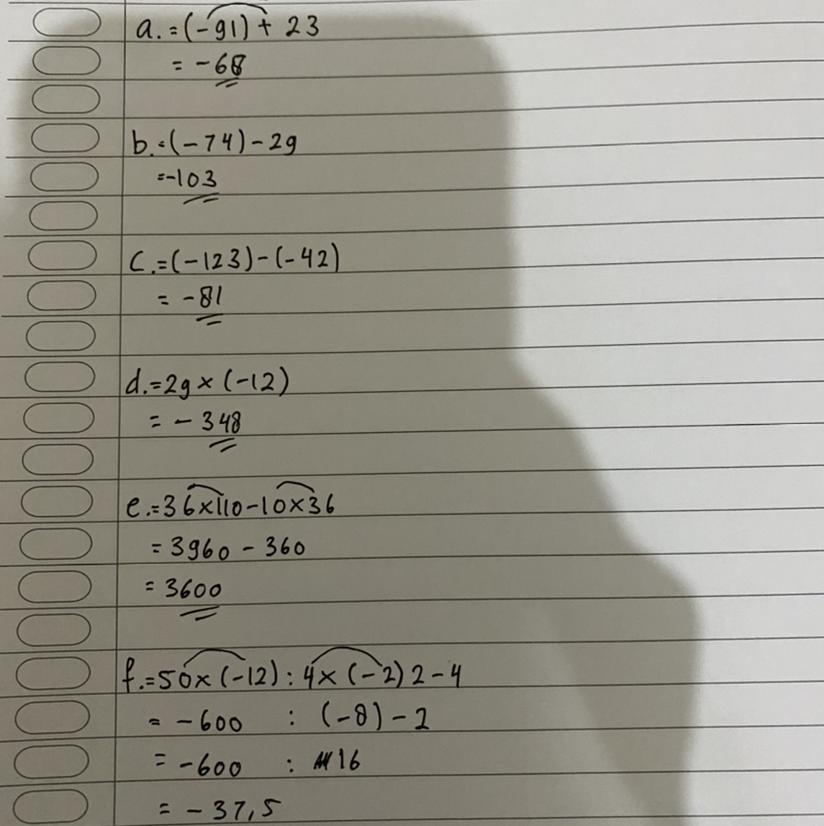 a. = (-91) + 23
= -68
b. = (-74) - 29
= -103
c. = (-123) - (-42)
= -81
d. = 29 × (-12)
= - 348
e. = 36 × 110 - 10 × 36
= 3960 - 360
= 3600
f. = 50 × (-12) : 4 × (-2) 2 - 4
= - 600 : (-8) - 2
= - 600 : 16
= - 37,5